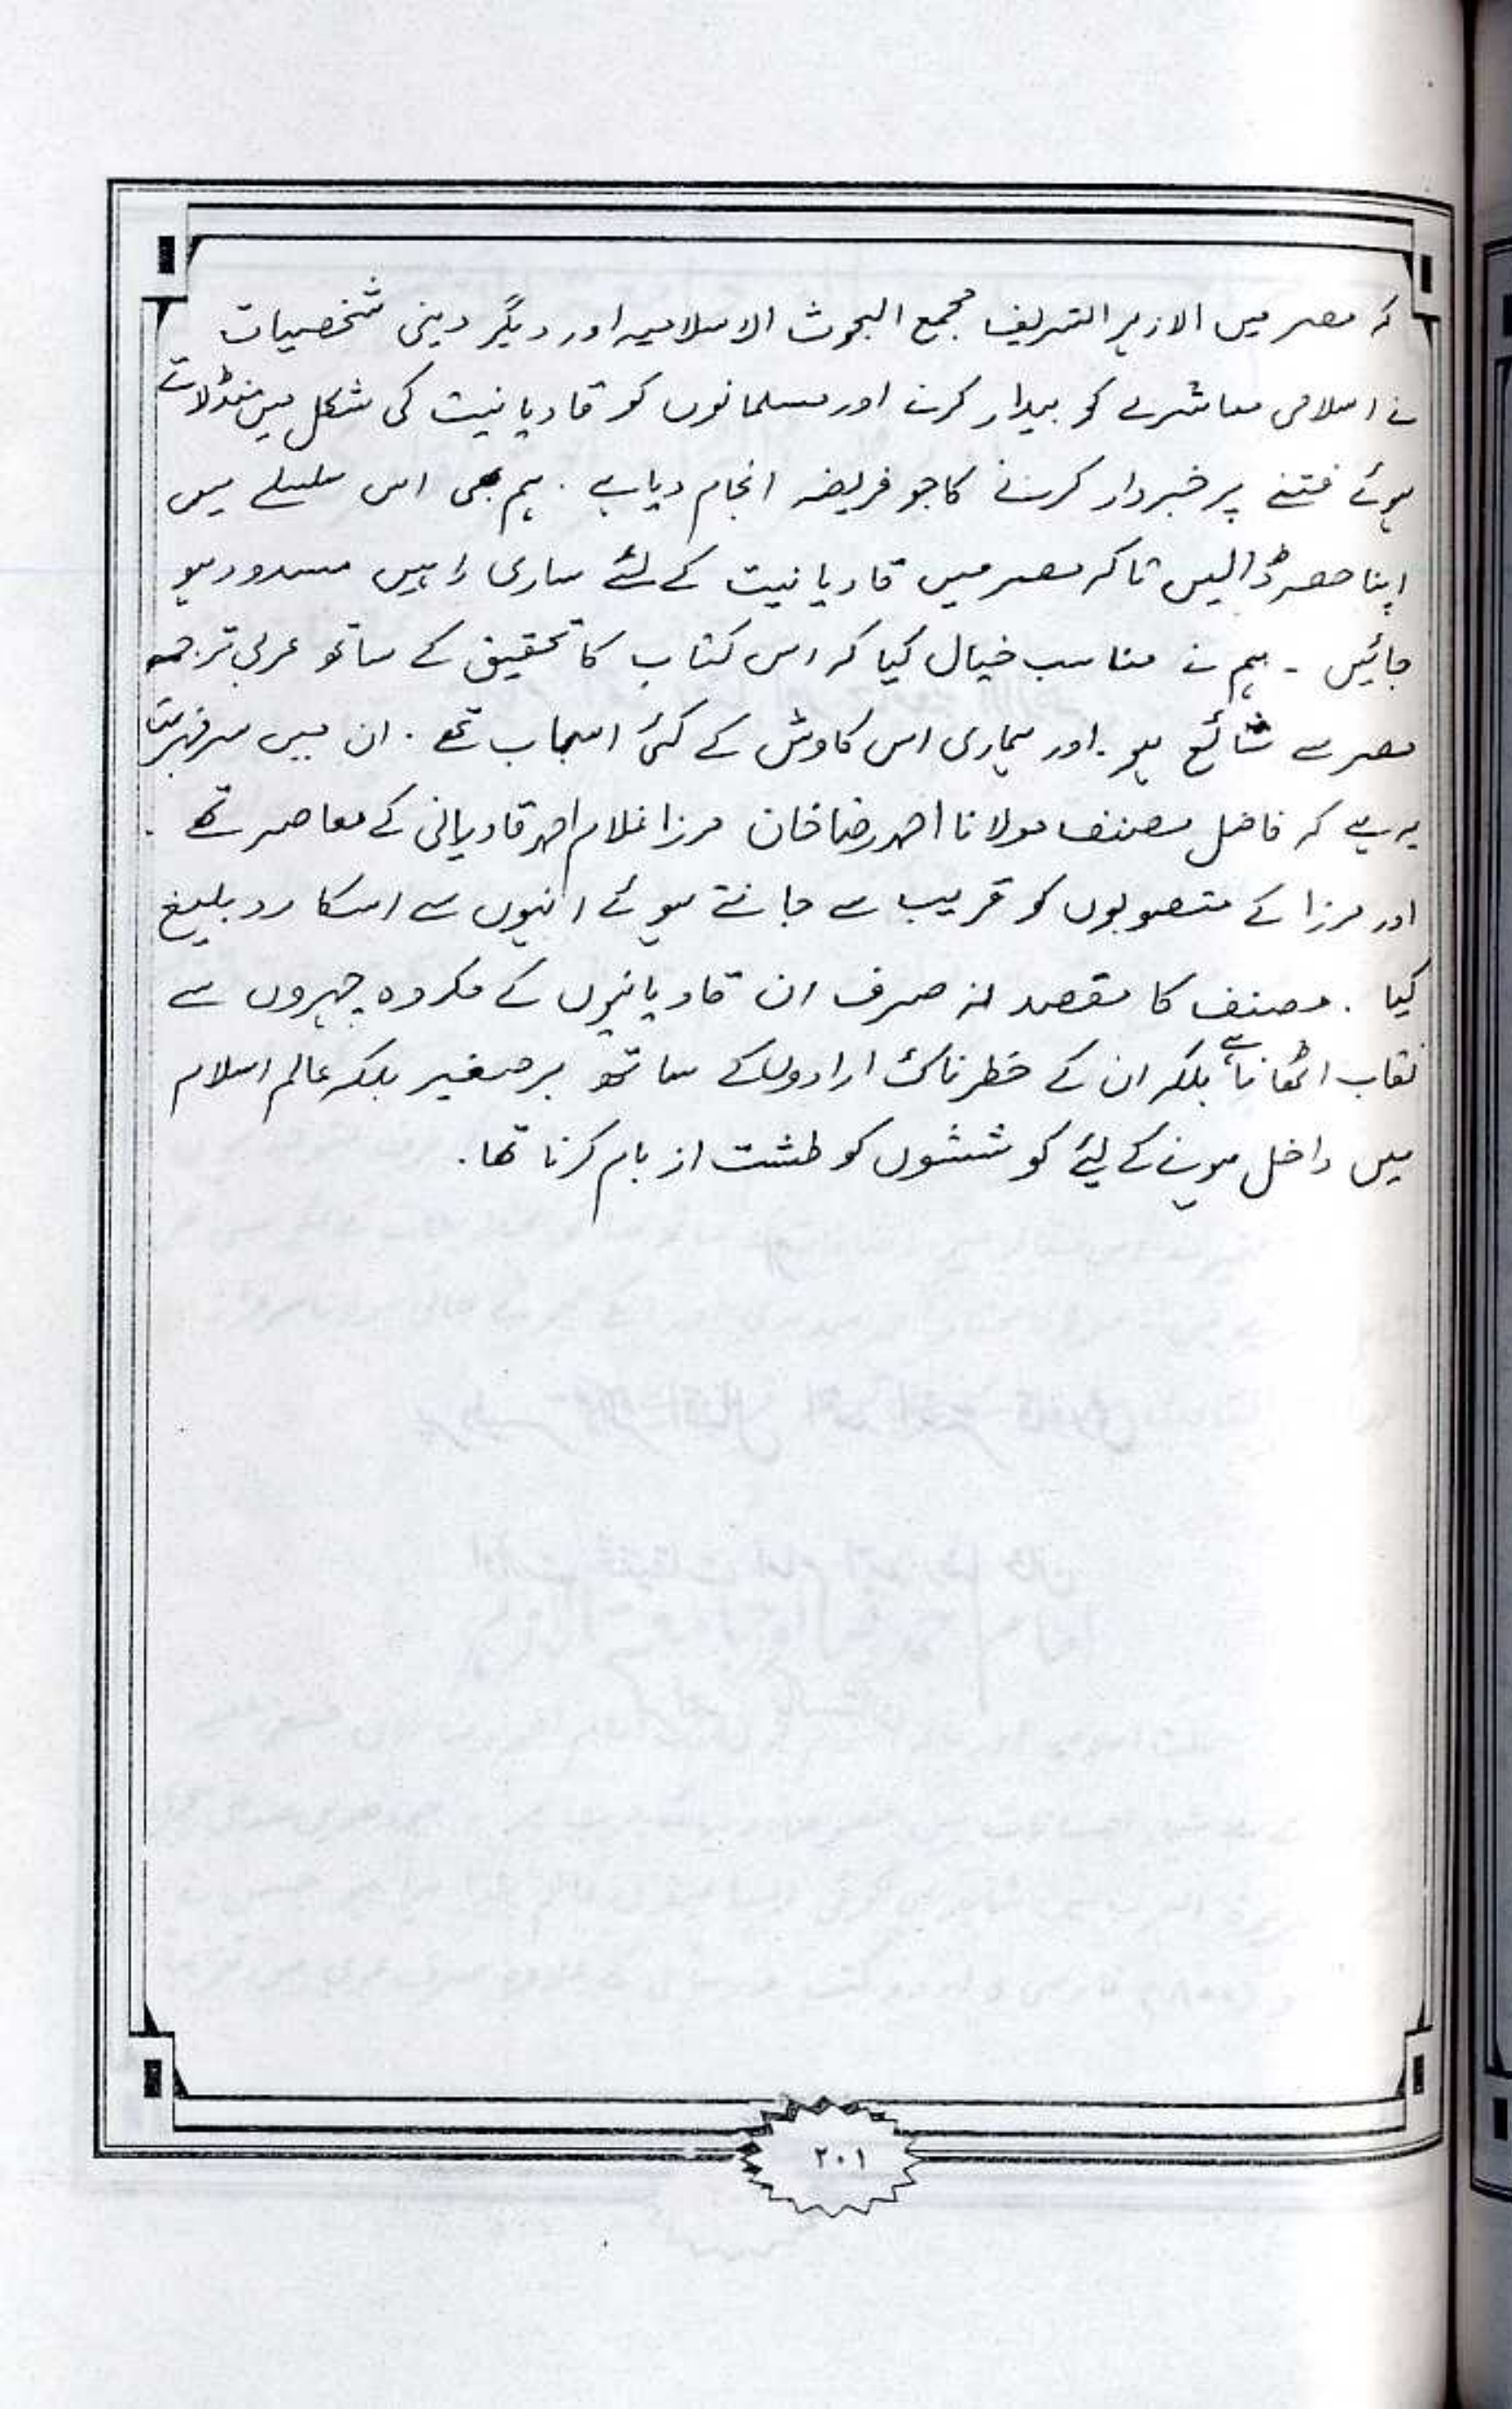 کہ مصر میں الازہر الشریف مجمع البحوث الاسلامیہ اور دیگر دینی شخصیات
نے اسلامی معاشرے کو بیدار کرنے اور مسلمانوں کو قادیانیت کی شکل میں منڈلاتے
ہوئے فتنے پر خبردار کرنے کا جو فریضہ انجام دیا ہے ۔ ہم بھی اس سلسلے میں
اپنا حصہ ڈالیں تاکہ مصر میں قادیانیت کے لئے ساری راہیں مسدود ہو
جائیں ۔ ہم نے مناسب خیال کیا کہ اس کتاب کا تحقیق کے ساتھ عربی ترجمہ
مصر سے شائع ہو ۔ اور ہماری اس کاوش کے کئی اسباب تھے ۔ ان میں سرفہرست
یہ ہے کہ فاضل مصنف مولانا احمد رضا خان مرزا غلام احمد قادیانی کے معاصر تھے ۔
اور مرزا کے منصوبوں کو قریب سے جانتے ہوئے انہوں سے اسکا رد بلیغ
کیا ۔ مصنف کا مقصد نہ صرف ان قادیانیوں کے مکروہ چہروں سے
نقاب اٹھانا ہے بلکہ ان کے خطرناک ارادوں کے ساتھ برصغیر بلکہ عالم اسلام
میں داخل ہونے کے لیئے کوششوں کو طشت از بام کرنا تھا ۔
۲۰۱